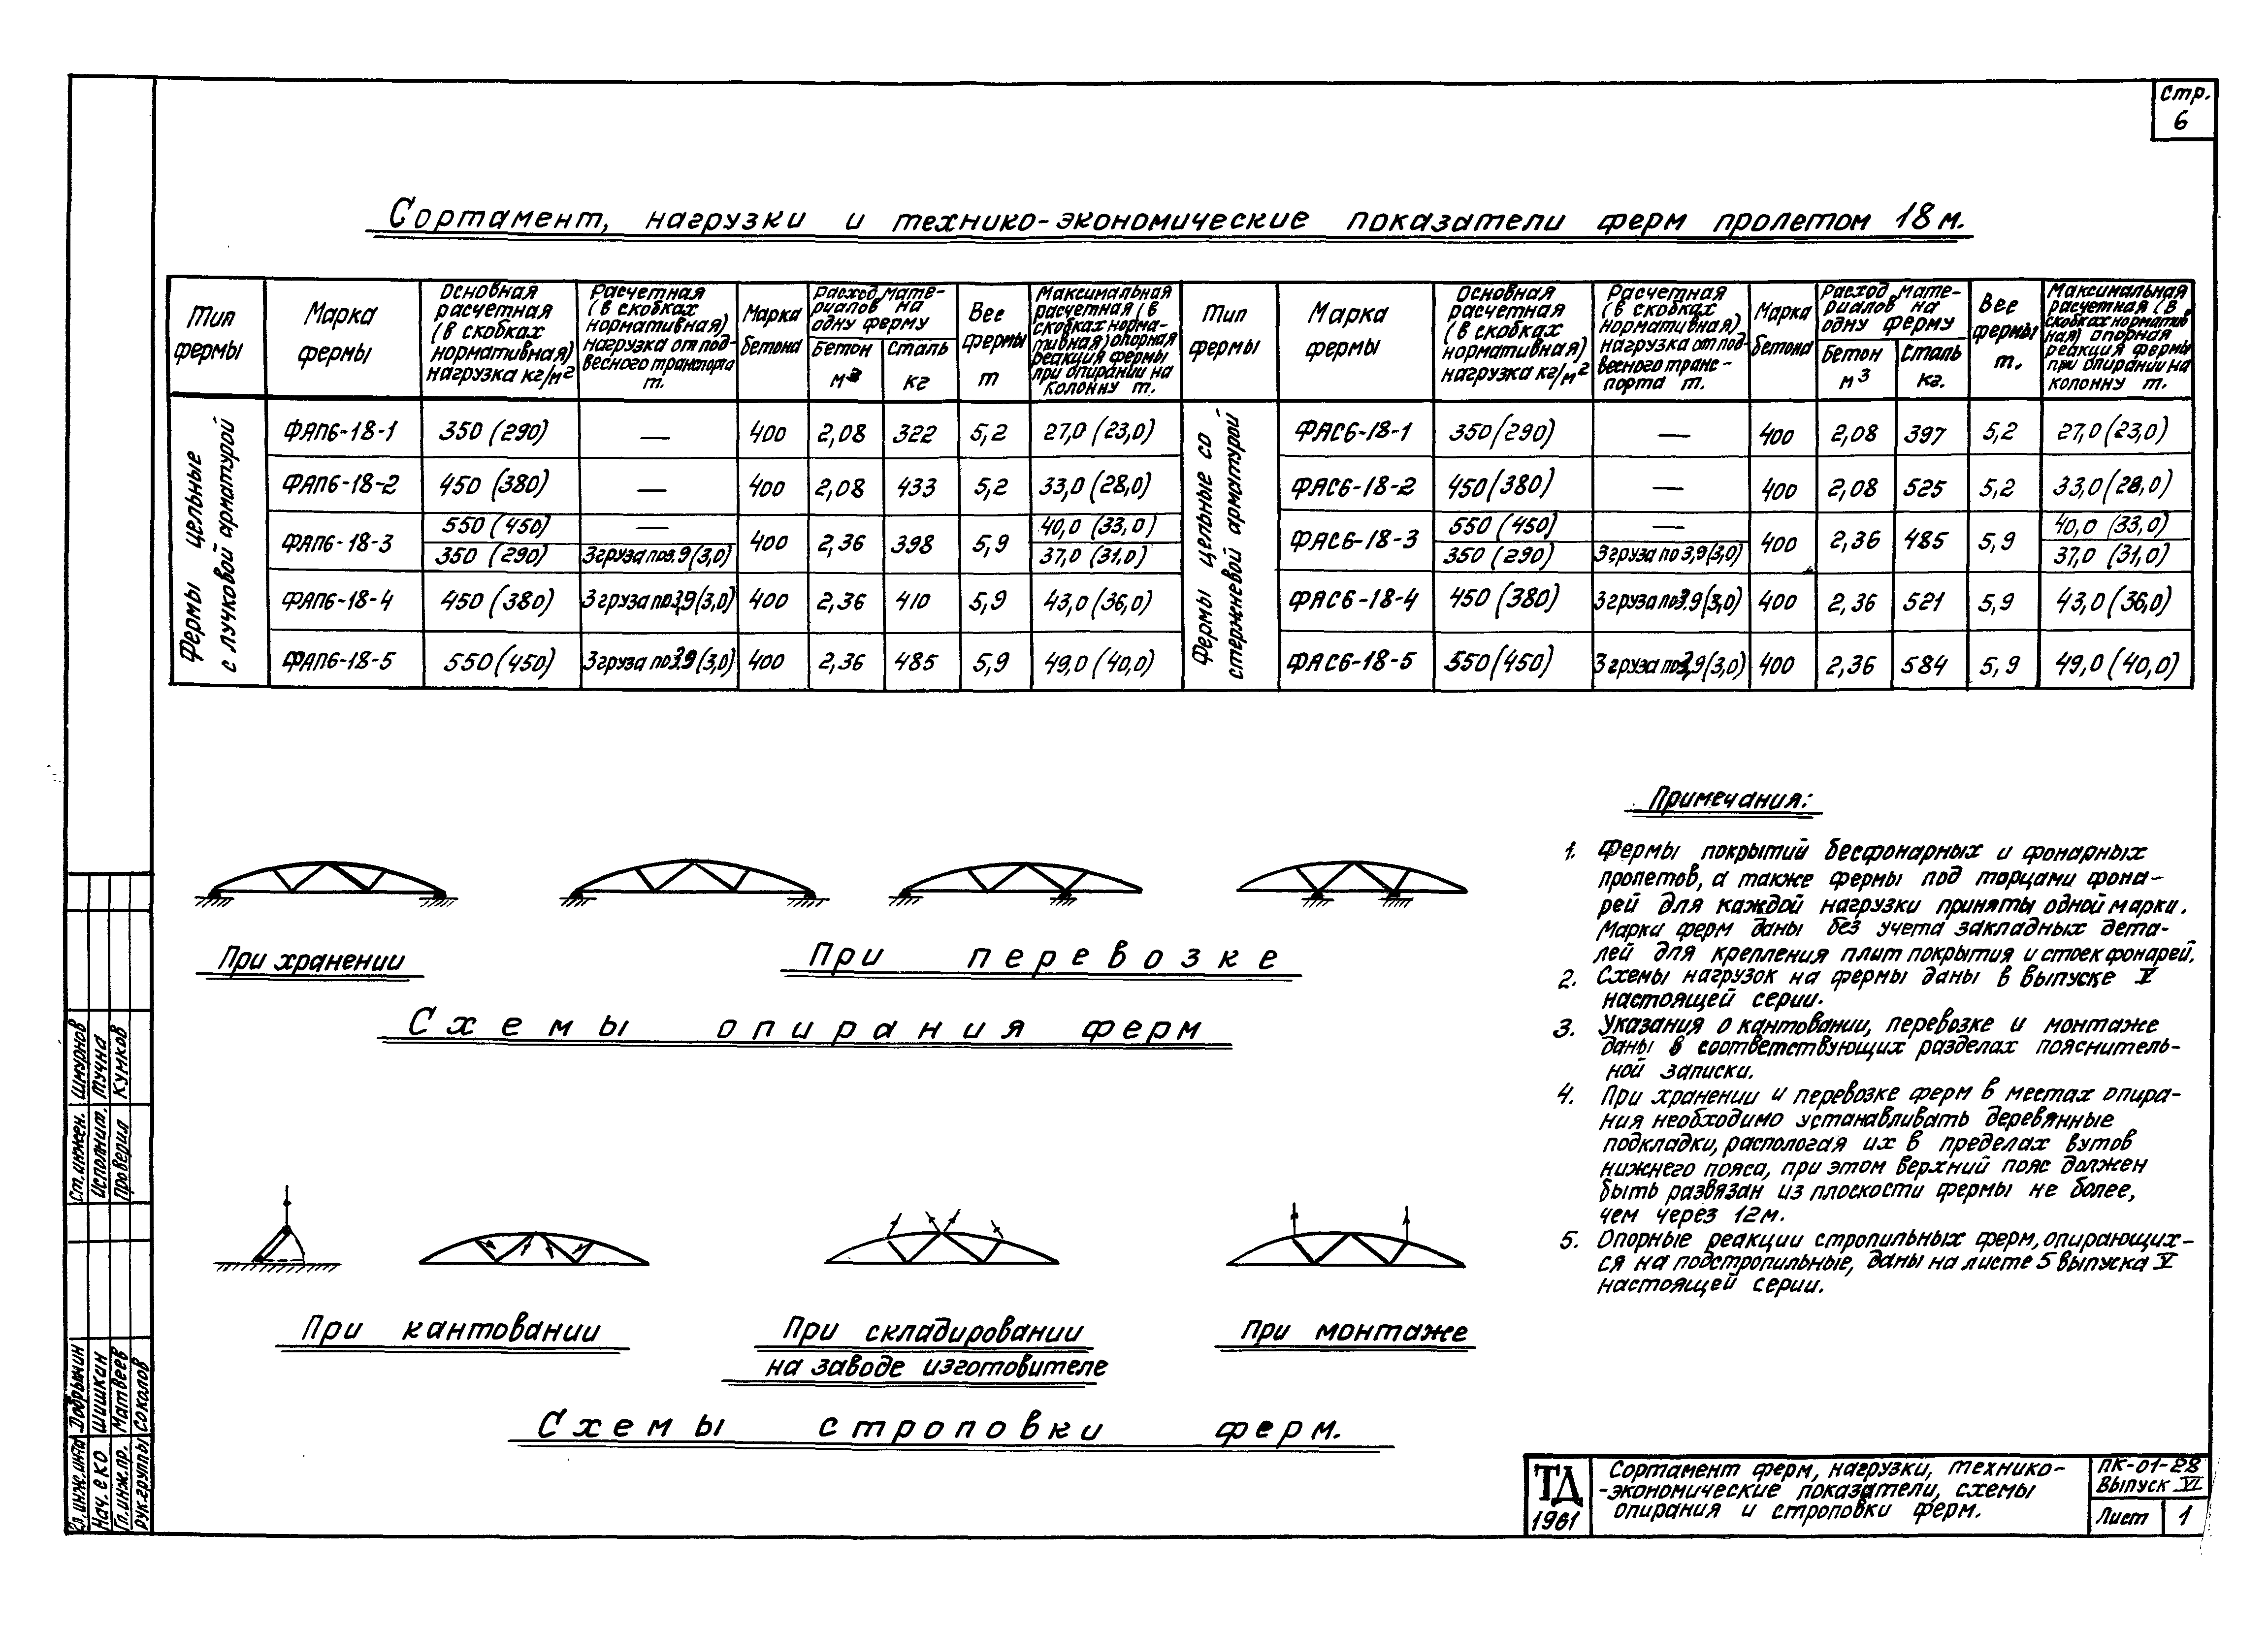 Стр.
6
Сортамент, нагрузки и технико-экономические показатели ферм пролетом 18 м.
Тип
фермы
Марка
фермы
Основная
расчетная
(в скобках
нормативная)
нагрузка кг/м²
Расчетная
(в скобках
нормативная)
нагрузка от под-
весного транспорта
т.
Марка
бетона
Расход мате-
риалов на
одну ферму
Бетон
м³
Сталь
кг
Вес
фермы
т
Максимальная
расчетная (в
скобках норма-
тивная) опорная
реакция фермы
при опирании на
колонну т.
Тип
фермы
Марка
фермы
Основная
расчетная
(в скобках
нормативная)
нагрузка кг/м²
Расчетная
(в скобках
нормативная)
нагрузка от под-
весного транс-
порта т.
Марка
бетона
Расход мате-
риалов на
одну ферму
Бетон
м³
Сталь
кг.
Вес
фермы
т.
Максимальная
расчетная (в
скобках норматив
ная) опорная
реакция фермы
при опирании на
колонну т.
Фермы цельные
с пучковой арматурой
ФАП6-18-1 350 (290) — 400 2,08 322 5,2 27,0 (23,0)
ФАП6-18-2 450 (380) — 400 2,08 433 5,2 33,0 (28,0)
ФАП6-18-3 550 (450) — 400 2,36 398 5,9 40,0 (33,0)
350 (290) 3 груза по 3,9 (3,0) 37,0 (31,0)
ФАП6-18-4 450 (380) 3 груза по 3,9 (3,0) 400 2,36 410 5,9 43,0 (36,0)
ФАП6-18-5 550 (450) 3 груза по 3,9 (3,0) 400 2,36 485 5,9 49,0 (40,0)
Фермы цельные со
стержневой арматурой
ФАС6-18-1 350 (290) — 400 2,08 397 5,2 27,0 (23,0)
ФАС6-18-2 450 (380) — 400 2,08 525 5,2 33,0 (28,0)
ФАС6-18-3 550 (450) — 400 2,36 485 5,9 40,0 (33,0)
350 (290) 3 груза по 3,9 (3,0) 37,0 (31,0)
ФАС6-18-4 450 (380) 3 груза по 3,9 (3,0) 400 2,36 521 5,9 43,0 (36,0)
ФАС6-18-5 550 (450) 3 груза по 3,9 (3,0) 400 2,36 584 5,9 49,0 (40,0)
При хранении
При перевозке
Схемы опирания ферм
При кантовании
При складировании
на заводе изготовителе
При монтаже
Схемы строповки ферм.
Примечания:
1. Фермы покрытий бесфонарных и фонарных
пролетов, а также фермы под торцами фона-
рей для каждой нагрузки приняты одной марки.
Марки ферм даны без учета закладных дета-
лей для крепления плит покрытия и стоек фонарей.
2. Схемы нагрузок на фермы даны в выпуске V
настоящей серии.
3. Указания о кантовании, перевозке и монтаже
даны в соответствующих разделах пояснитель-
ной записки.
4. При хранении и перевозке ферм в местах опира-
ния необходимо устанавливать деревянные
подкладки, распологая их в пределах вутов
нижнего пояса, при этом верхний пояс должен
быть развязан из плоскости фермы не более,
чем через 12 м.
5. Опорные реакции стропильных ферм, опирающих-
ся на подстропильные, даны на листе 5 выпуска V
настоящей серии.
Ст. инжен. Шмурнов
Исполнит. Тучна
Проверил Кумков
Гл. инж. ин-та Добрынин
Нач. еко Шишкин
Гл. инж. пр. Матвеев
Рук. группы Соколов
ТД
1961
Сортамент ферм, нагрузки, технико-
-экономические показатели, схемы
опирания и строповки ферм.
ПК-01-28
Выпуск VI
Лист 1